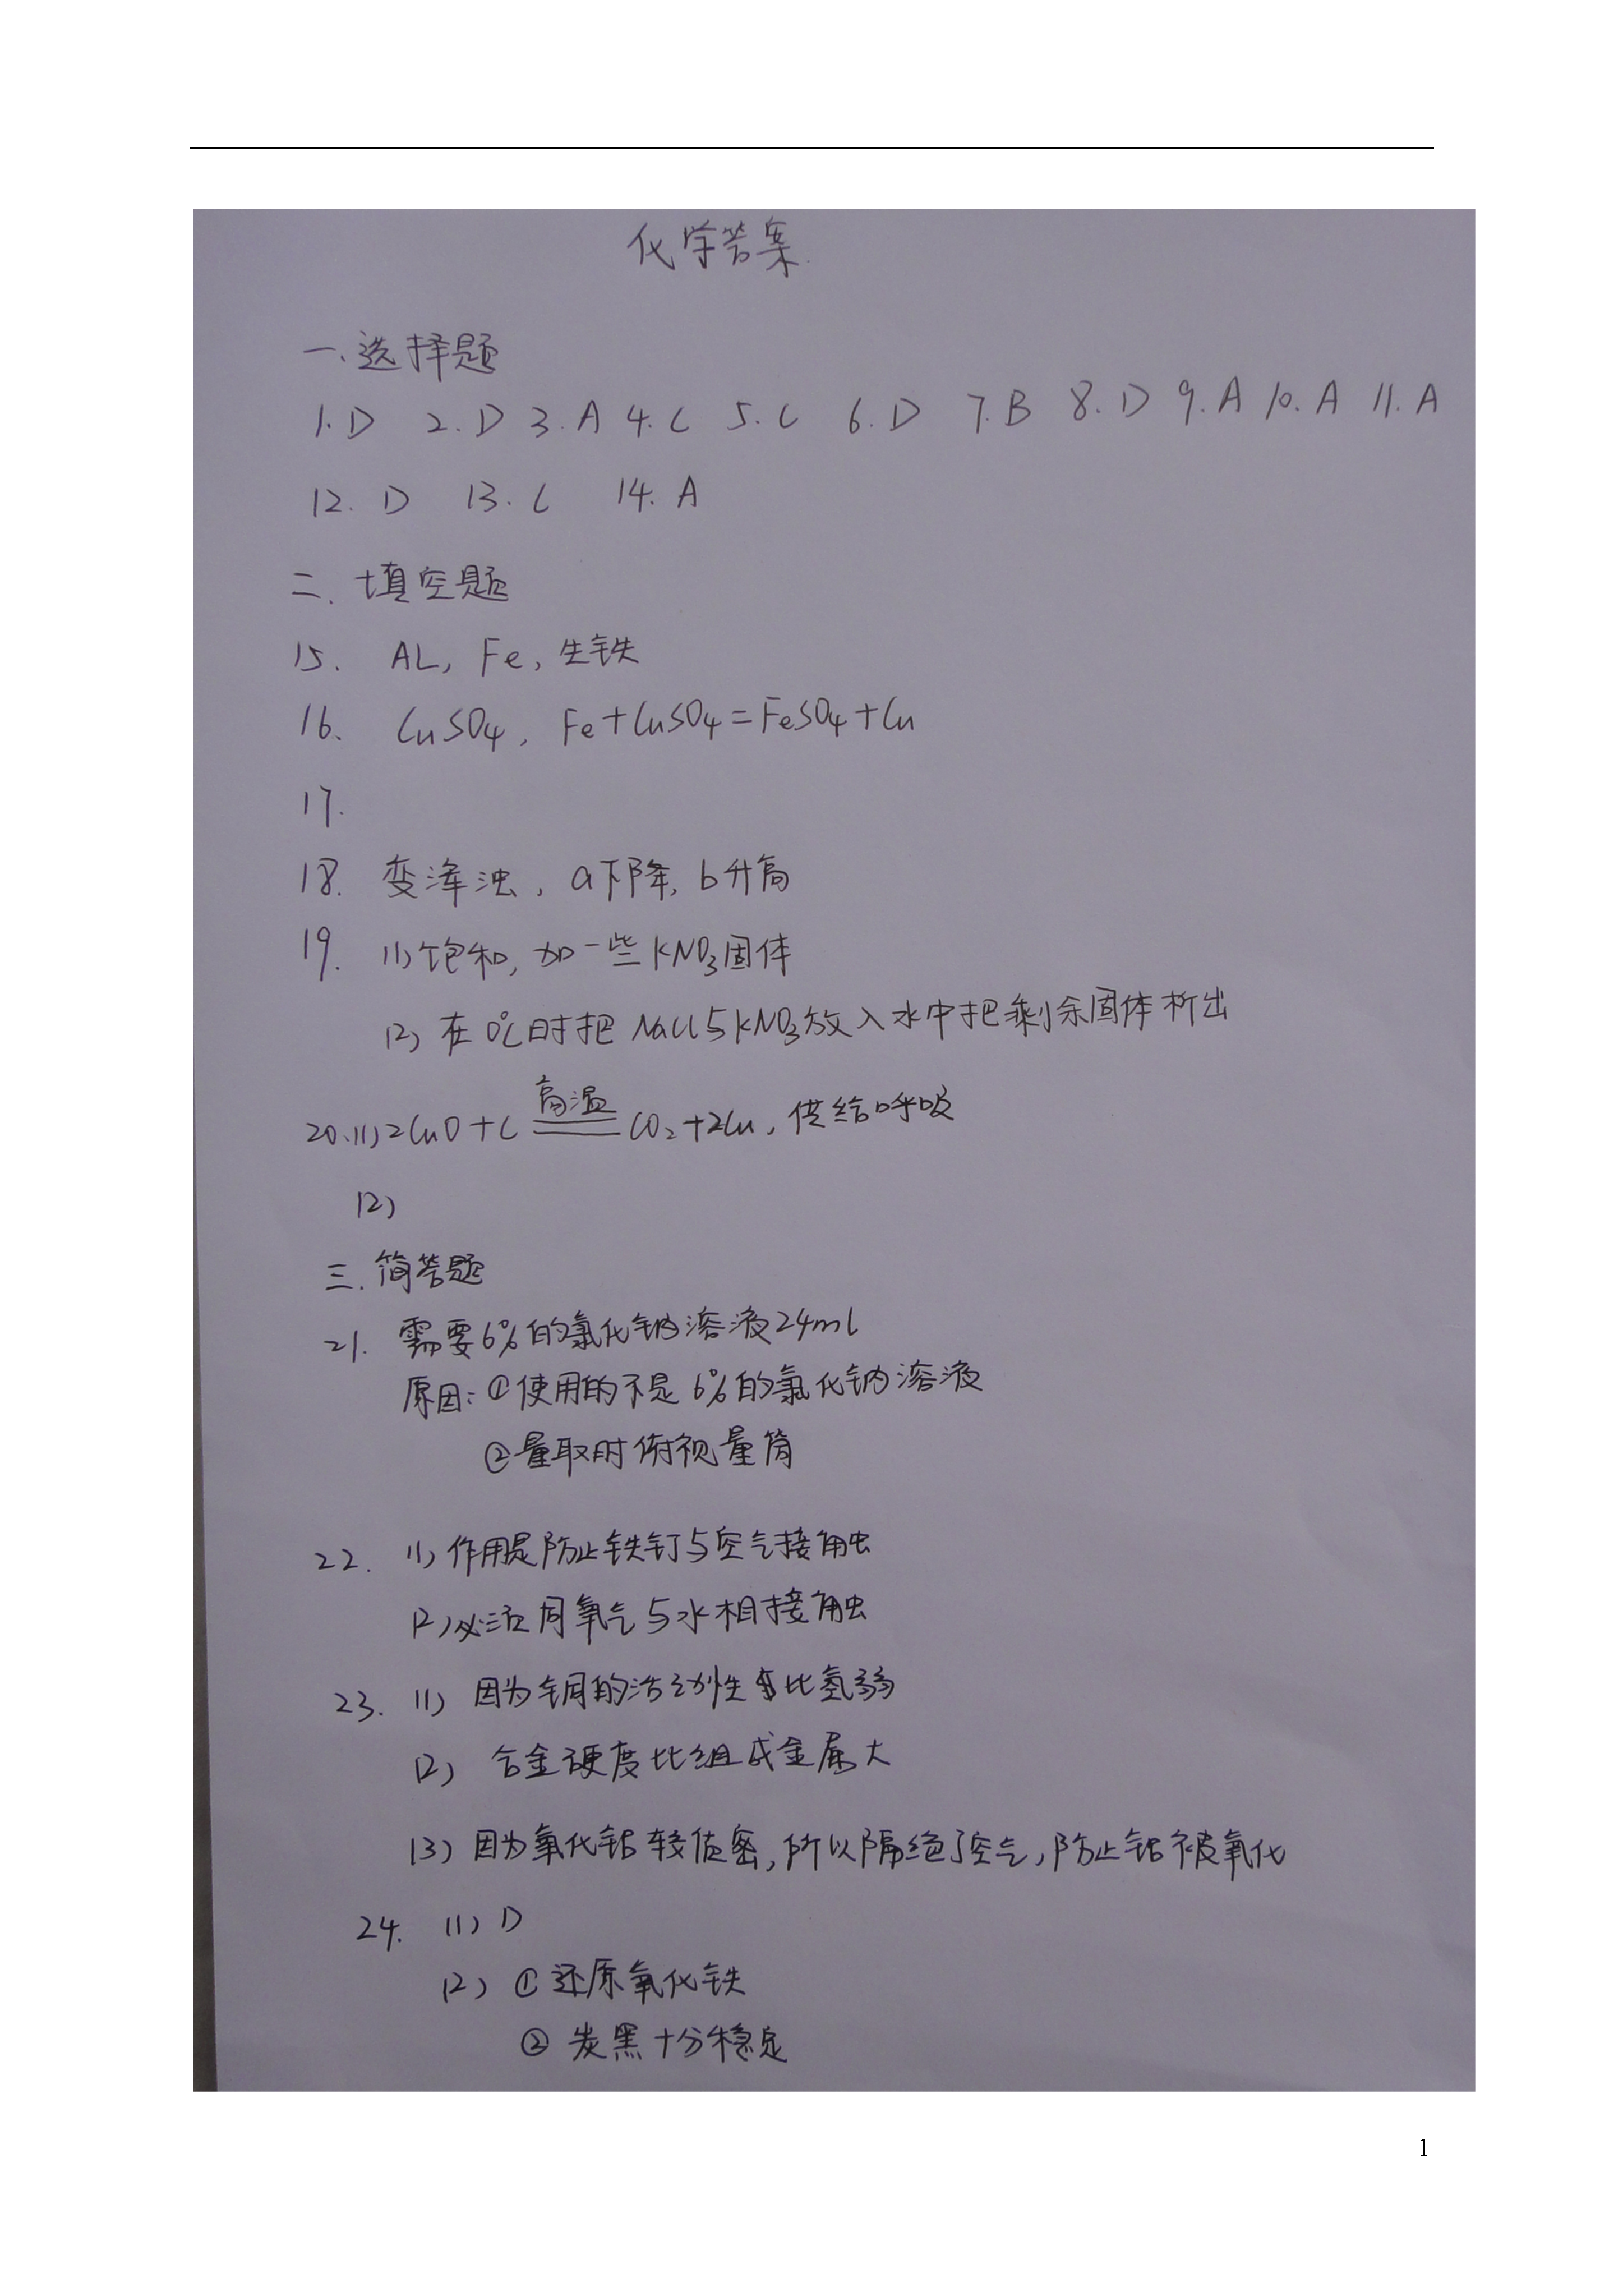 化学答案
一、选择题
1.D 2.D 3.A 4.C 5.C 6.D 7.B 8.D 9.A 10.A 11.A
12.D 13.C 14.A
二、填空题
15. AL, Fe, 生铁
16. CuSO₄, Fe+CuSO₄=FeSO₄+Cu
17.
18. 变浑浊, a下降, b升高
19. (1)饱和, 加一些KNO₃固体
(2)在0℃时把NaCl与KNO₃放入水中把剩余固体析出
高温
20.(1)2CuO+C══CO₂+2Cu, 供给呼吸
(2)
三、简答题
21. 需要6%的氯化钠溶液24ml
原因:①使用的不是6%的氯化钠溶液
②量取时俯视量筒
22. (1)作用是防止铁钉与空气接触
(2)必须同氧气与水相接触
23. (1) 因为铜的活动性比氢弱
(2) 合金硬度比组成金属大
(3)因为氧化铝较致密,所以隔绝了空气,防止铝被氧化
24. (1) D
(2) ①还原氧化铁
②炭黑十分稳定
1